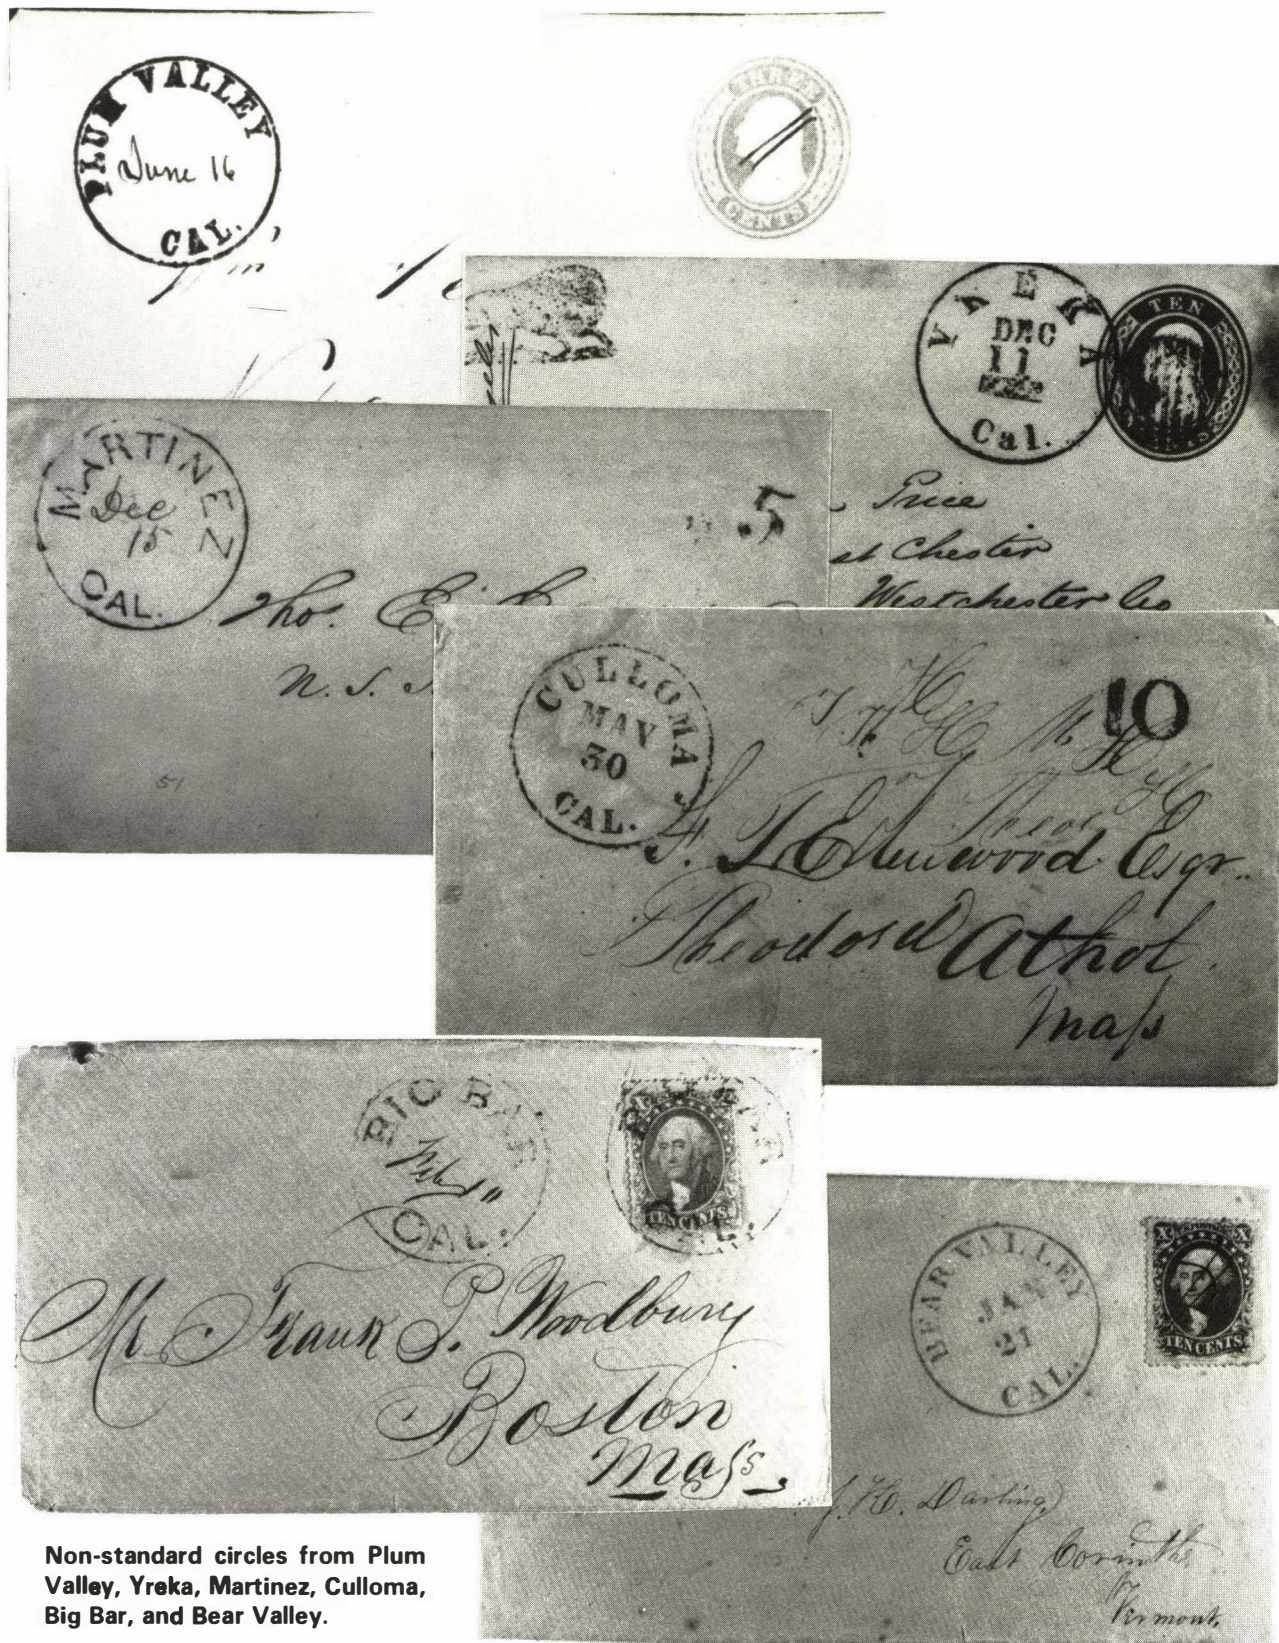 PLUM VALLEY
June 16
CAL.
THREE
CENTS
YREKA
DEC
11
Cal.
TEN
Price
st Chester
Westchester Co
MARTINEZ
Dec
15
CAL.
5
Tho. E.
N. S.
51
CULLOMA
MAY
30
CAL.
10
F. T. Ellenwood Esqr.
Theodosa Athol
Mass
BIG BAR
Feby 11
CAL.
TEN CENTS
Mr. Frank P. Woodbury
Boston
Mass.
BEAR VALLEY
JAN
21
CAL.
X X
TEN CENTS
J. H. Darling
East Corinth
Vermont.
Non-standard circles from Plum
Valley, Yreka, Martinez, Culloma,
Big Bar, and Bear Valley.